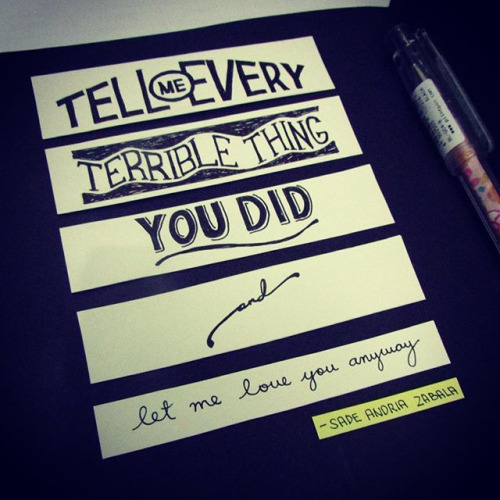 TELL ME EVERY
TERRIBLE THING
YOU DID
and
let me love you anyway
-SADE ANDRIA ZABALA